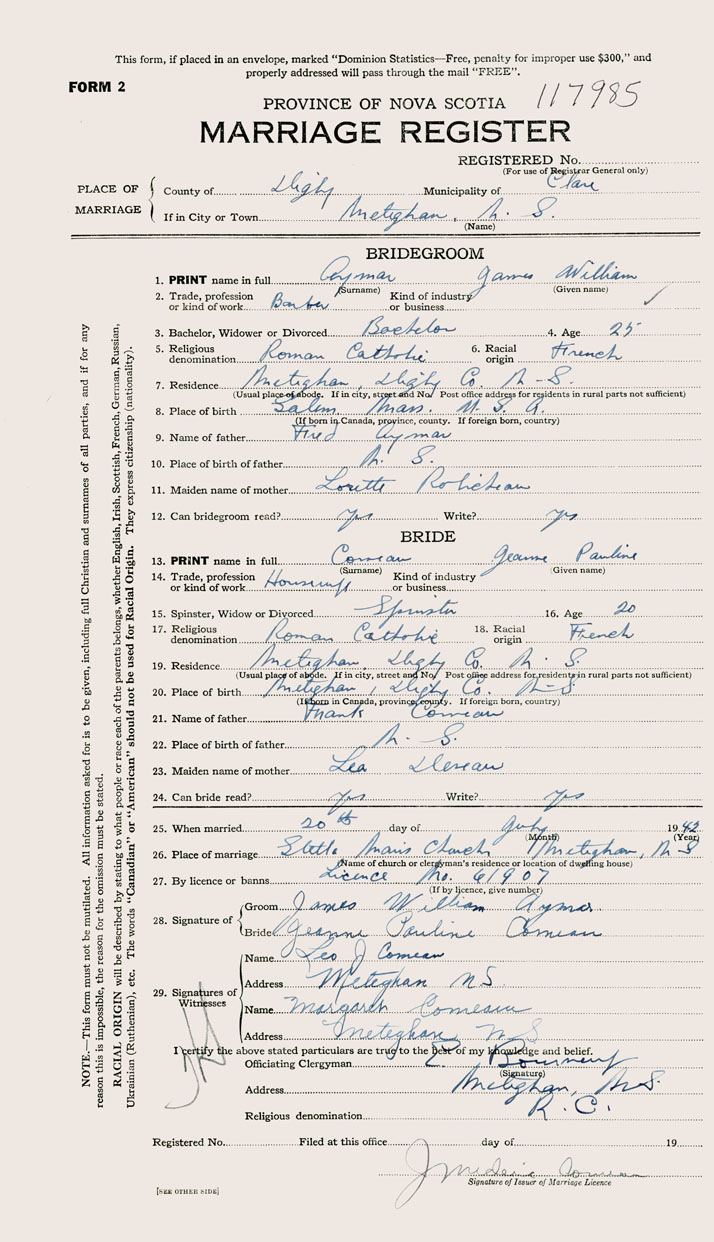 This form, if placed in an envelope, marked "Dominion Statistics—Free, penalty for improper use $300," and
properly addressed will pass through the mail "FREE".
FORM 2
117985
PROVINCE OF NOVA SCOTIA
MARRIAGE REGISTER
REGISTERED No.
(For use of Registrar General only)
PLACE OF MARRIAGE
County of Digby Municipality of Clare
If in City or Town Meteghan, N. S.
(Name)
BRIDEGROOM
1. PRINT name in full Aymar James William
(Surname) (Given name)
2. Trade, profession or kind of work Barber Kind of industry or business
3. Bachelor, Widower or Divorced Bachelor 4. Age 25
5. Religious denomination Roman Catholic 6. Racial origin French
7. Residence Meteghan, Digby Co. N-S.
(Usual place of abode. If in city, street and No. Post office address for residents in rural parts not sufficient)
8. Place of birth Salem Mass. U. S. A.
(If born in Canada, province, county. If foreign born, country)
9. Name of father Fred Aymar
10. Place of birth of father N. S.
11. Maiden name of mother Lorette Robicheau
12. Can bridegroom read? Yes Write? Yes
BRIDE
13. PRINT name in full Comeau Jeanne Pauline
(Surname) (Given name)
14. Trade, profession or kind of work Housewife Kind of industry or business
15. Spinster, Widow or Divorced Spinster 16. Age 20
17. Religious denomination Roman Catholic 18. Racial origin French
19. Residence Meteghan, Digby Co. N. S.
(Usual place of abode. If in city, street and No. Post office address for residents in rural parts not sufficient)
20. Place of birth Meteghan, Digby Co. N-S
(If born in Canada, province, county. If foreign born, country)
21. Name of father Frank Comeau
22. Place of birth of father N. S.
23. Maiden name of mother Lea Deveau
24. Can bride read? Yes Write? Yes
25. When married 20th day of July 1942
(Month) (Year)
26. Place of marriage Stella Maris Church Meteghan, N-S
(Name of church or clergyman's residence or location of dwelling house)
27. By licence or banns Licence No. 61907
(If by licence, give number)
28. Signature of
Groom James William Aymar
Bride Jeanne Pauline Comeau
29. Signatures of Witnesses
Name Leo J Comeau
Address Meteghan NS
Name Margaret Comeau
Address Meteghan N S
I certify the above stated particulars are true to the best of my knowledge and belief.
Officiating Clergyman
(Signature)
Address Meteghan, N.S.
Religious denomination R. C.
Registered No. Filed at this office day of 19
Comeau
Signature of Issuer of Marriage Licence
[SEE OTHER SIDE]
NOTE.—This form must not be mutilated. All information asked for is to be given, including full Christian and surnames of all parties, and if for any
reason this is impossible, the reason for the omission must be stated.
RACIAL ORIGIN will be described by stating to what people or race each of the parents belongs, whether English, Irish, Scottish, French, German, Russian,
Ukrainian (Ruthenian), etc. The words "Canadian" or "American" should not be used for Racial Origin. They express citizenship (nationality).